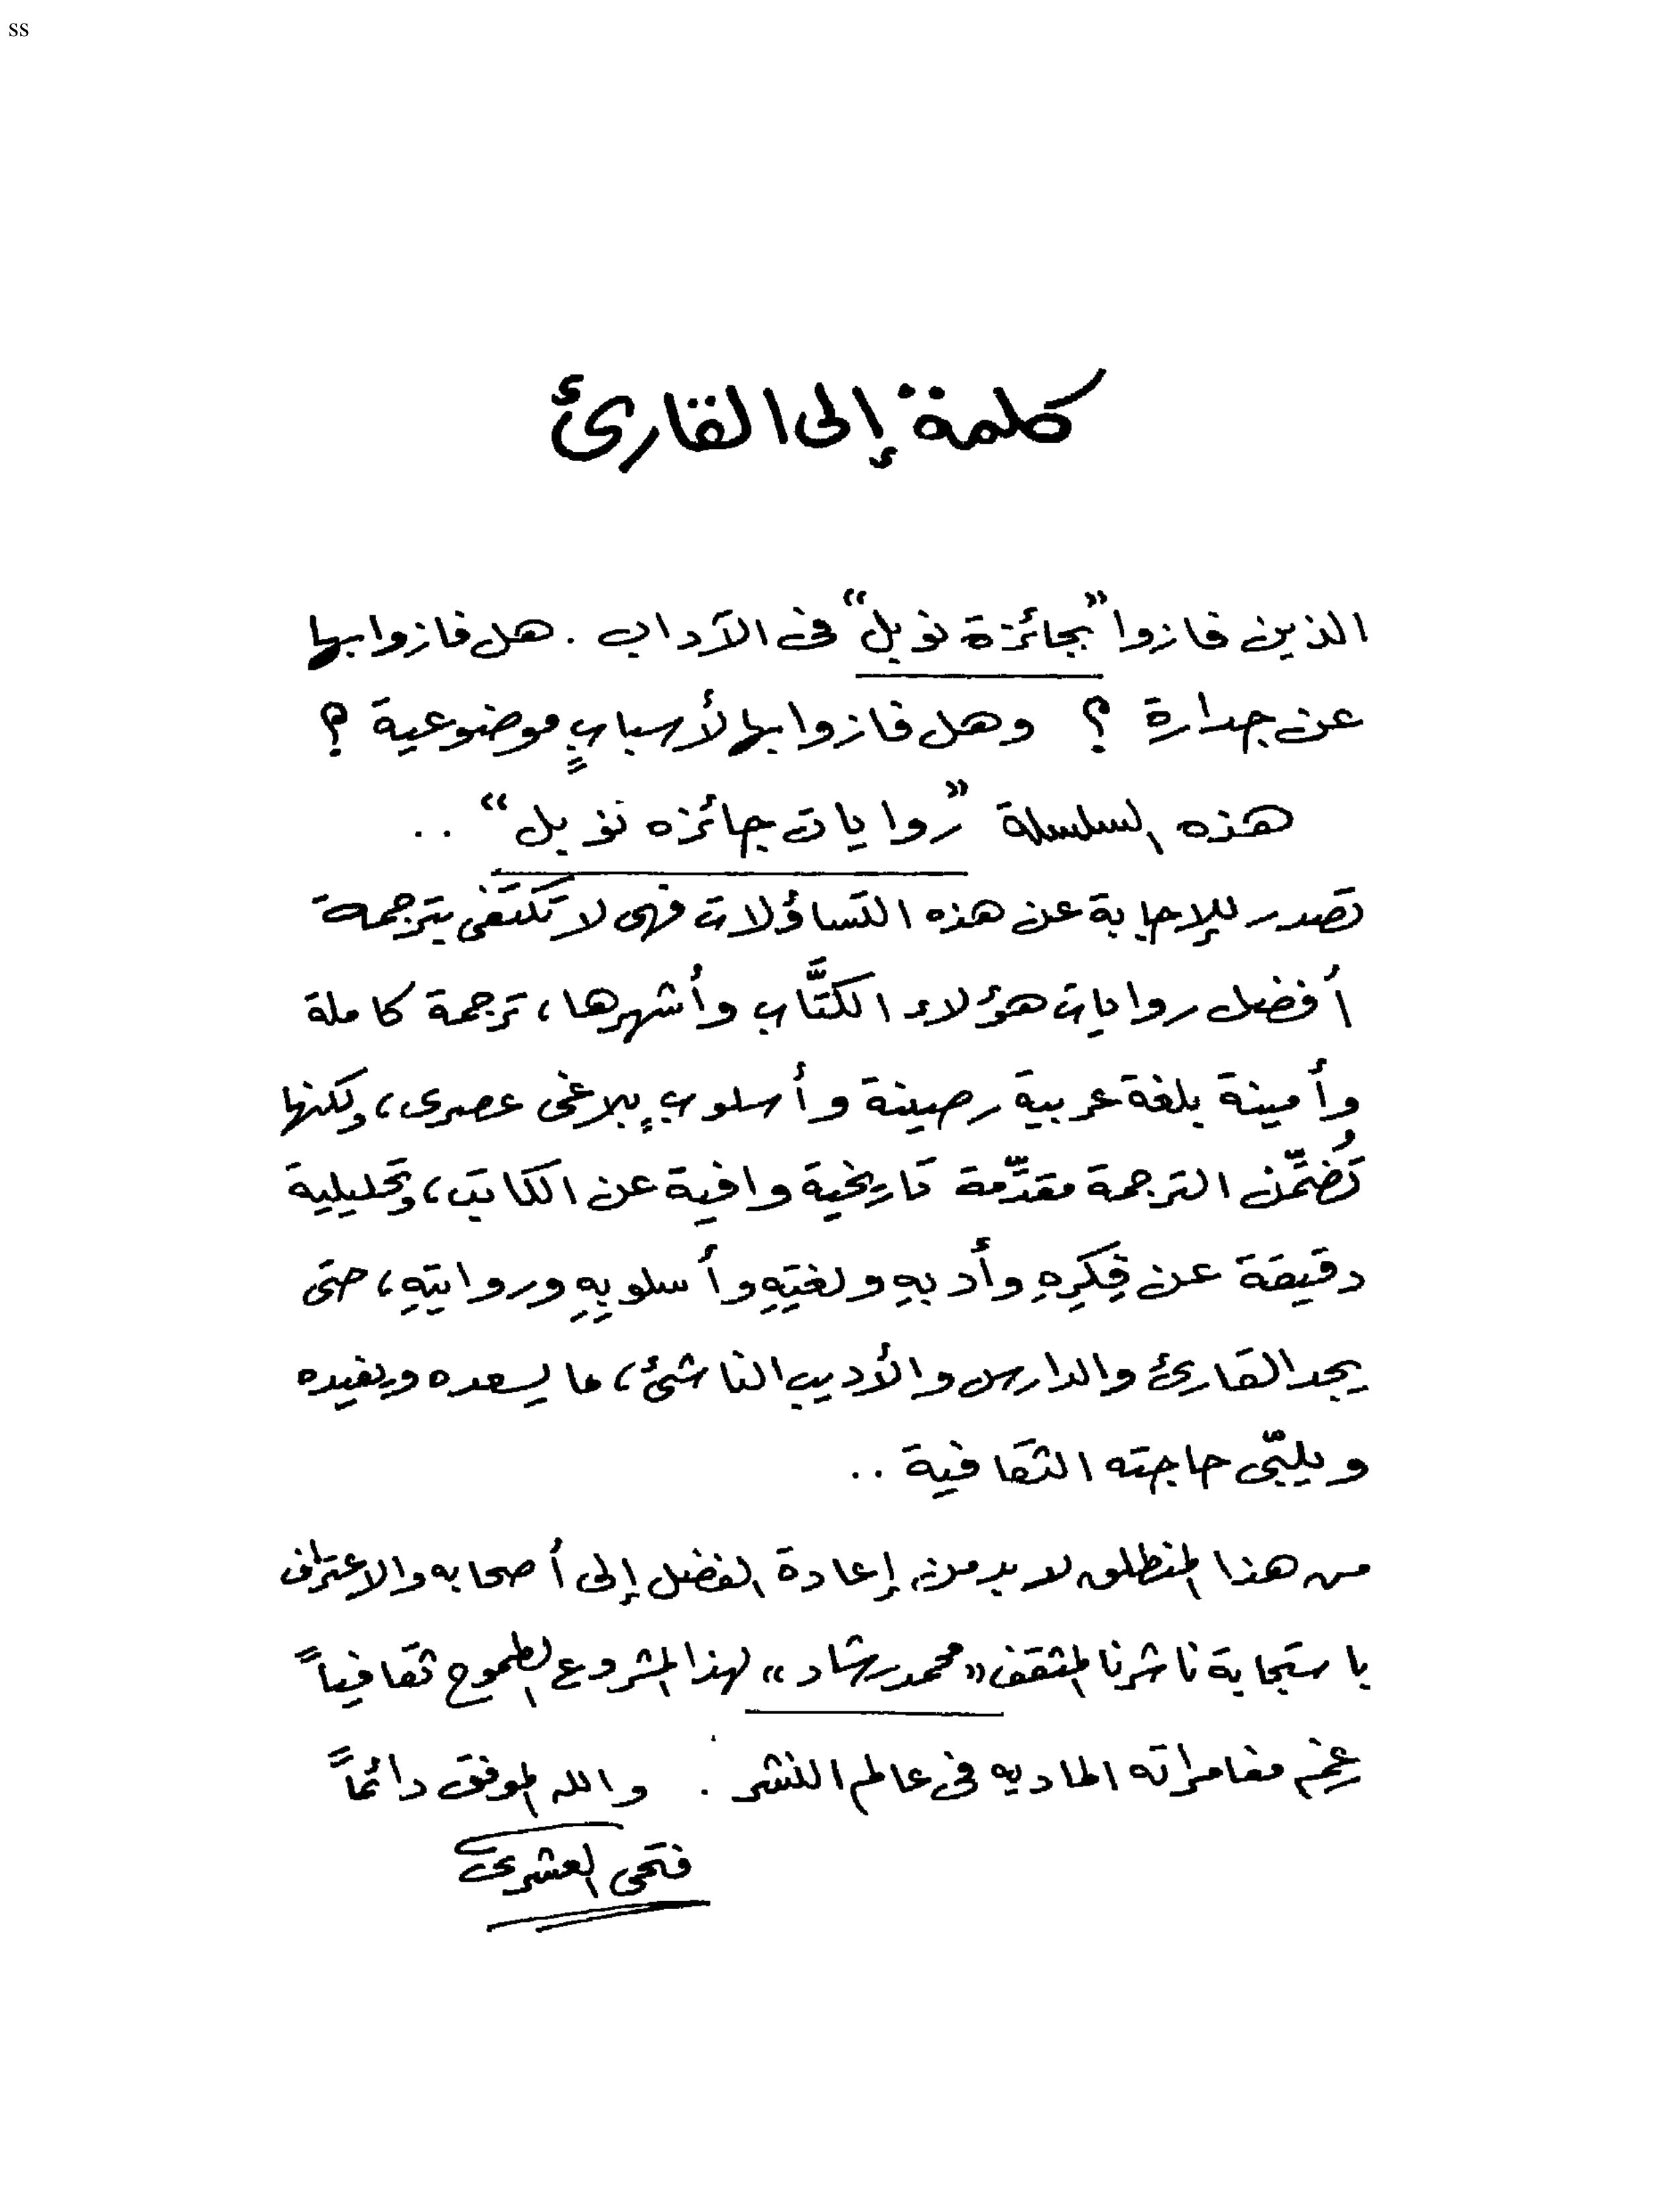 ss
كلمة إلى القارئ
الذين فازوا "بجائزة نوبل" فى الآداب . هل فازوا بها
عن جدارة ؟ وهل فازوا بها لأسبابٍ موضوعية ؟
هذه السلسلة "روايات جائزه نوبل" ..
تصدر للإجابة عن هذه التساؤلات فهى لا تكتفى بترجمة
أفضل روايات هؤلاء الكتَّاب وأشهرها، ترجمة كاملة
وأمينة بلغة عربية رصينة وأسلوبٍ بلاغى عصرى، ولكنها
تُضمِّن الترجمة مقدّمة تاريخية وافية عن الكاتب، وتحليلية
دقيقة عن فِكرِهِ وأدبهِ ولغتِهِ وأسلوبِهِ وروايتِهِ، حتى
يجد القارئ والدارس والأديب الناشئ، ما يسعده ويفيده
ويلبّى حاجته الثقافية ..
من هذا المنطلق لا بد من إعادة الفضل إلى أصحابه والاعتراف
باستجابة ناشرنا المثقف «محمد رشاد» لهذا المشروع الطموح ثقافياً
رغم مغامراته الماديه فى عالم النشر . والله الموفق دائماً
فتحى العشرى